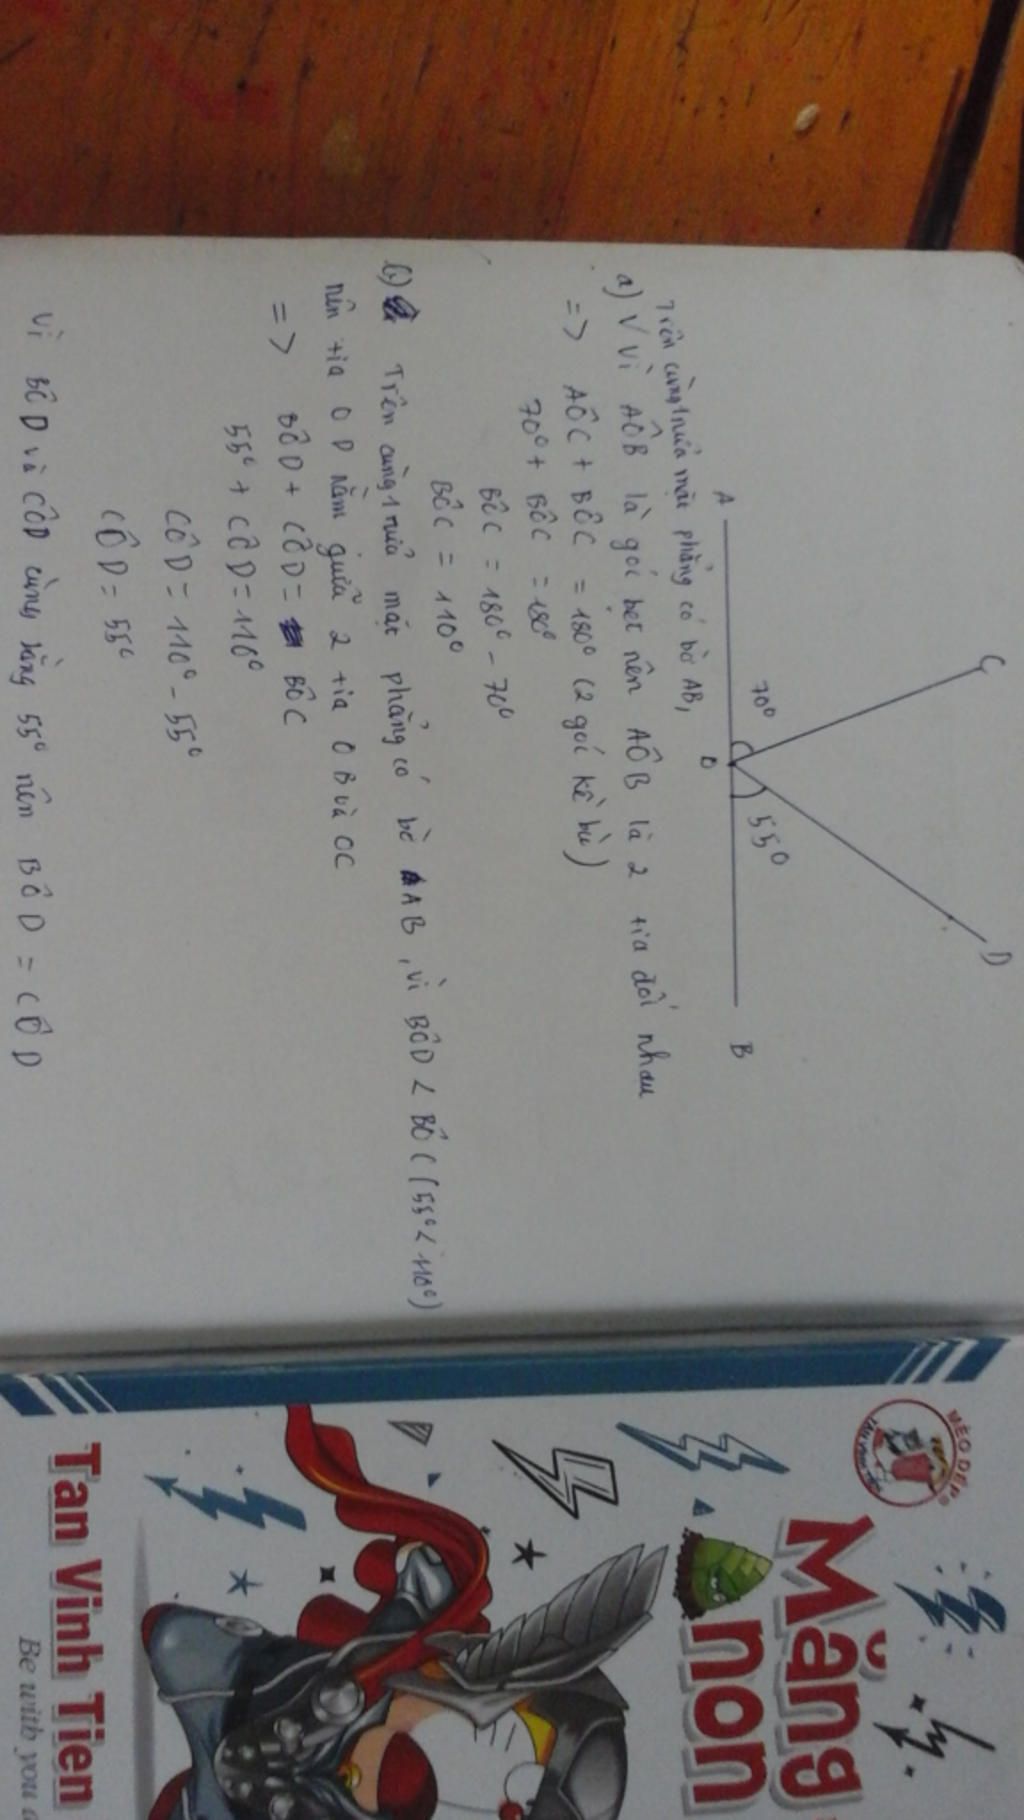 C
D
70°
55°
A
O
B
Trên cùng 1 nửa mặt phẳng có bờ AB,
a) Vì AÔB là góc bẹt nên AÔB là 2 tia đối nhau
=> AÔC + BÔC = 180° (2 góc kề bù)
70° + BÔC = 180°
BÔC = 180° - 70°
BÔC = 110°
b) Trên cùng 1 nửa mặt phẳng có bờ AB, vì BÔD < BÔC (55° < 110°)
nên tia OD nằm giữa 2 tia OB và OC
=> BÔD + CÔD = BÔC
55° + CÔD = 110°
CÔD = 110° - 55°
CÔD = 55°
Vì BÔD và CÔD cùng bằng 55° nên BÔD = CÔD
MÈO DẸP
Măng
non
Tan Vinh Tien
Be with you